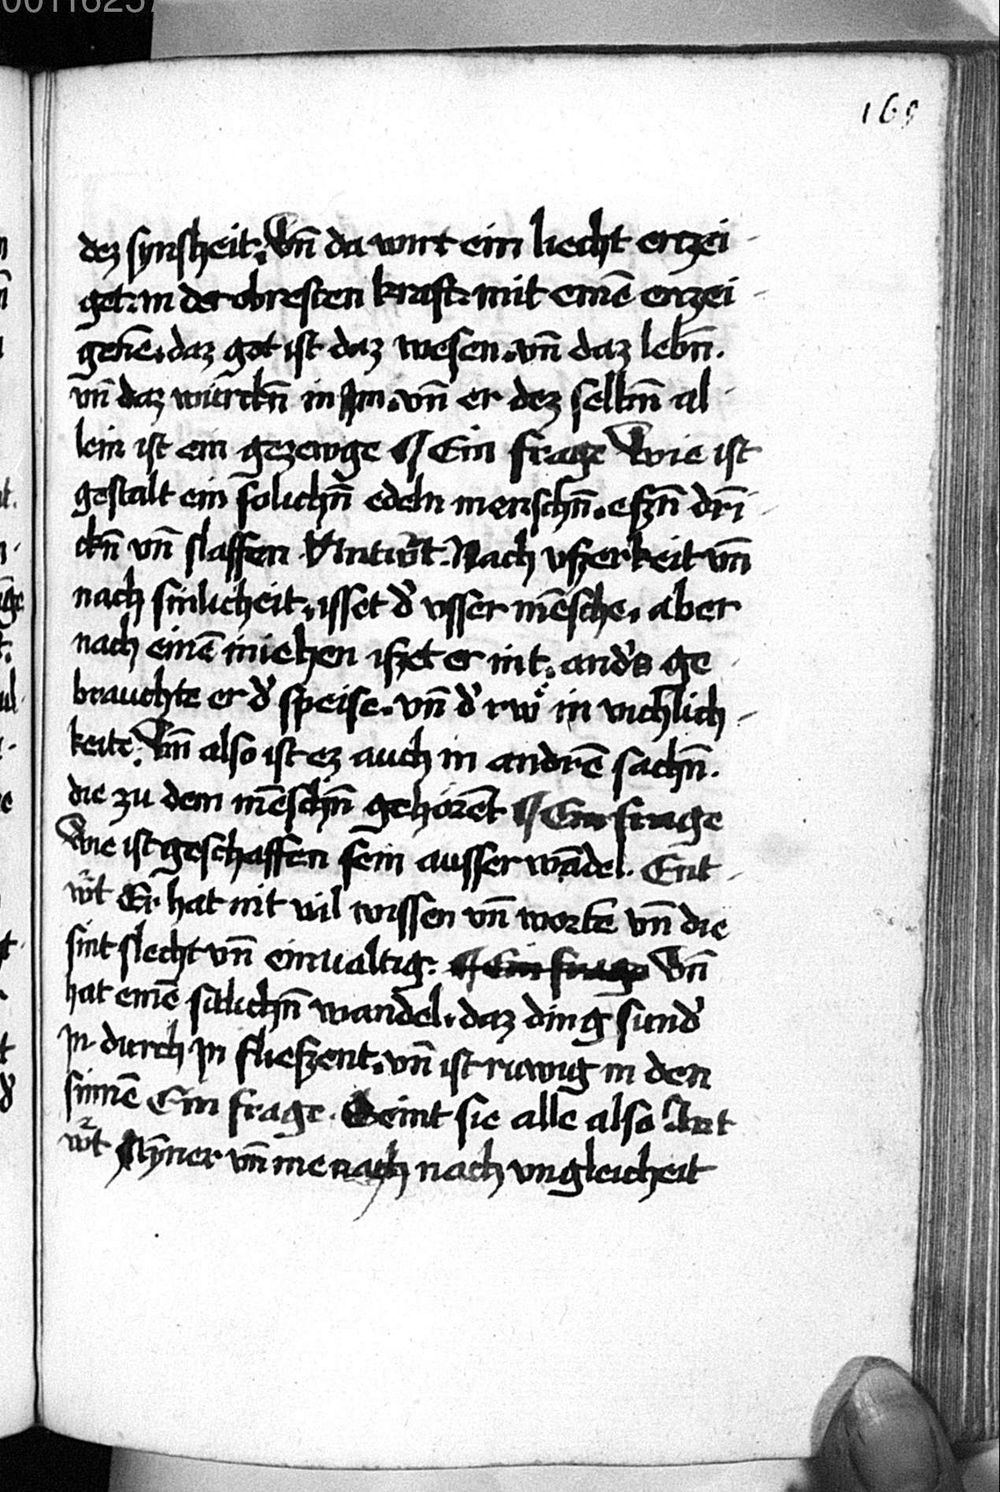 00116257
169
dez synsheit. Vn̄ da wirt ein liecht erczei
get. in der obresten kraft. mit einē erczei
gen̄e. daz got ist daz wesen. vn̄ daz lebn̄.
vn̄ daz würckn̄ in Jm. vn̄ er dez selbm̄ al
lein ist ein gezewge ¶ Ein frage Wie ist
gestalt ein solichn̄ edeln menschn̄. eszn̄ dri
ckn̄ vn̄ slaffen Antw̄t. Nach vszerkeit vn̄
nach sinlicheit. isset d̉ vsser mēsche. aber
nach einē iniehen iszet er nit. and̉s ge
brauchte er d̉ speise. vn̄ d̉ rẘ in vichlich
keite. Vn̄ also ist ez auch in andrē sachn̄.
die zu dem mēschn̄ gehorēt ¶ Ein frage
Wie ist geschaffen sein ausser wādel. Ent
w̄t Er hat nit vil wissen vn̄ worte vn̄ die
sint slecht vn̄ einualtig. ¶ Ein frage Vn̄
hat einē sitlichn̄ wandel. daz ding sund̉
Jn durch Jn flieszent. vn̄ ist ruwig in den
sinnē Ein frage. Seint sie alle also Ant
w̄t Ayner vn̄ me nach nach vngleicheit